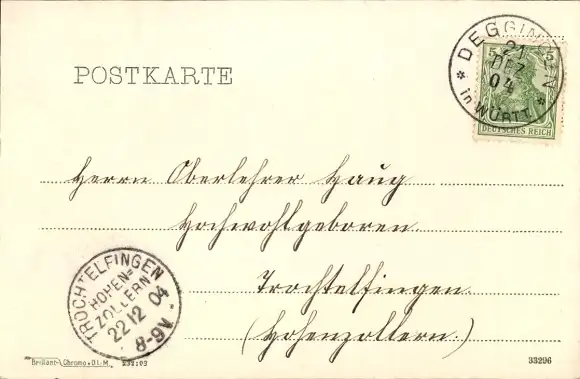 POSTKARTE
DEGGINGEN
21
DEZ
04
* in WÜRTT. *
5 5
DEUTSCHES REICH
Herrn Oberlehrer Haug
Hochwohlgeboren
Trochtelfingen
(Hohenzollern.)
TROCHTELFINGEN
HOHEN=
ZOLLERN
22 12 04
8-9V.
Brillant-Chromo • D.L.M. 33296